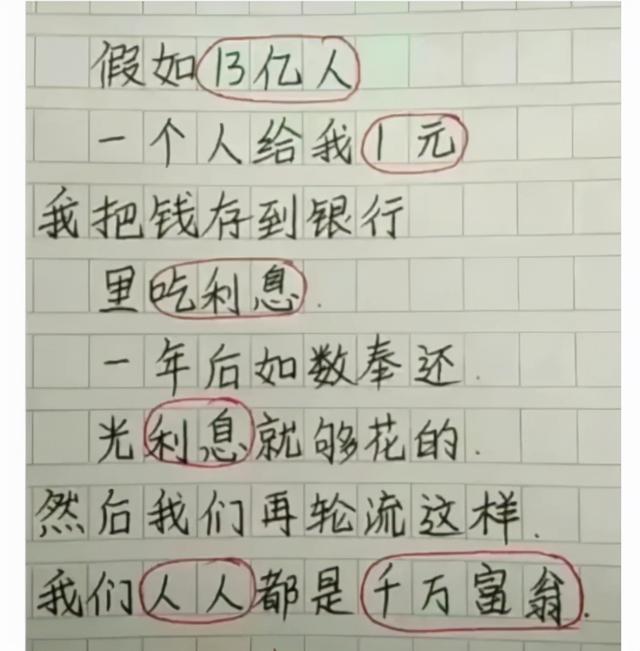 假如13亿人
一个人给我1元
我把钱存到银行
里吃利息.
一年后如数奉还.
光利息就够花的.
然后我们再轮流这样.
我们人人都是千万富翁.